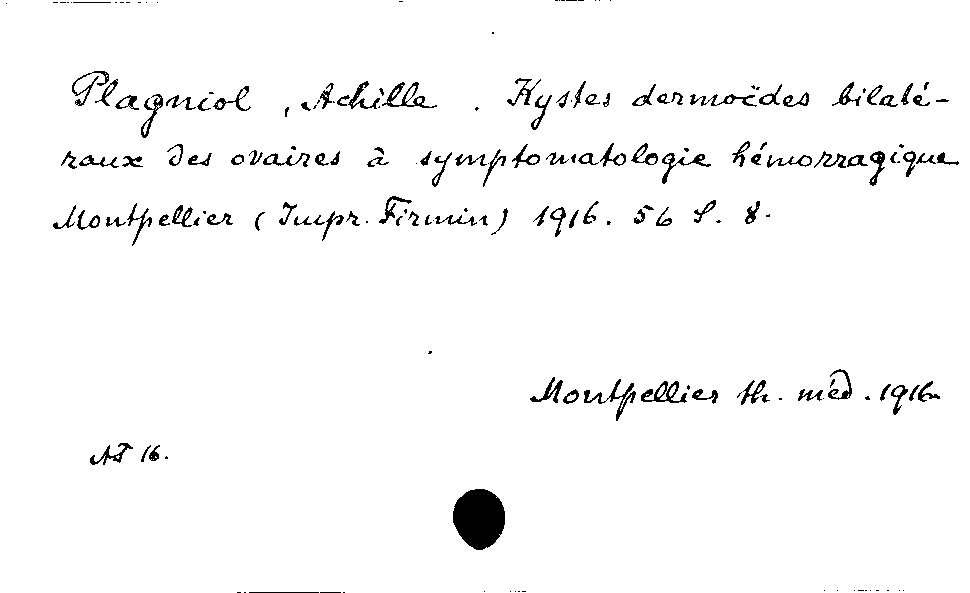 Plagniol, Achille. Kystes dermoïdes bilaté-
raux des ovaires à symptomatologie hémorragique
Montpellier (Impr. Firmin) 1916. 56 S. 8.
Montpellier th. méd. 1916.
AT 16.